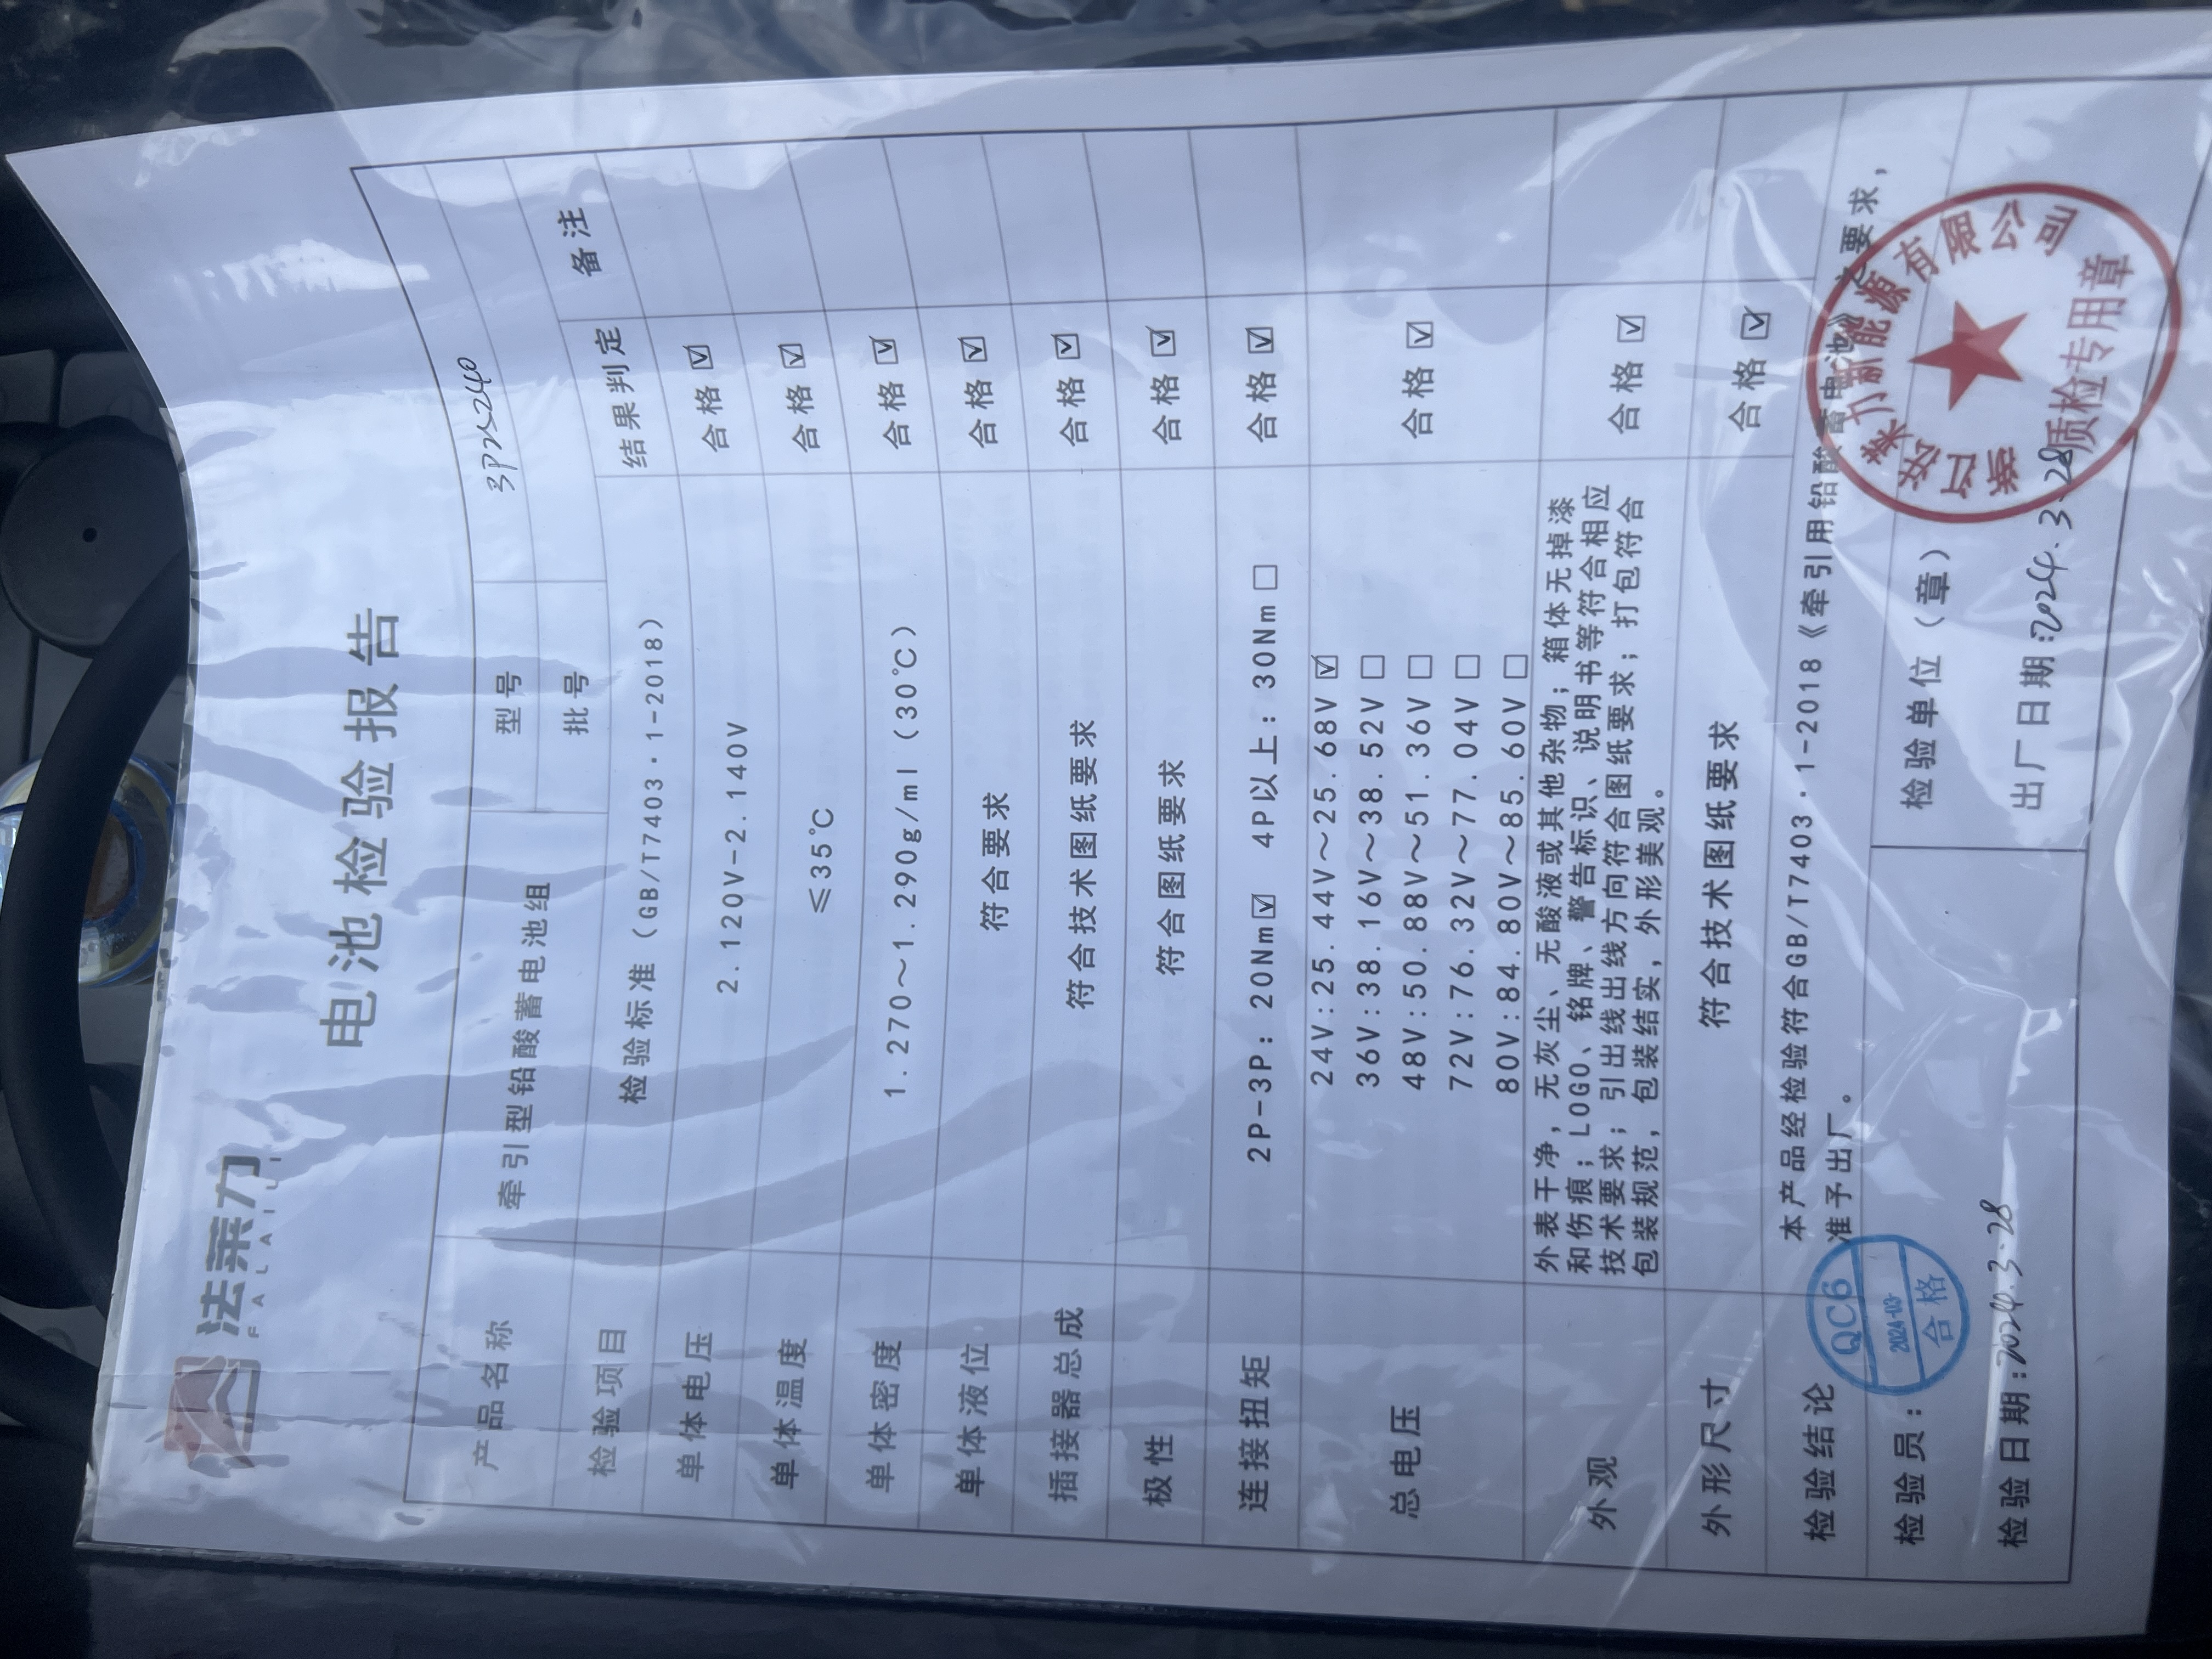 法莱力
FALAILI
电池检验报告
产品名称 牵引型铅酸蓄电池组 型号 3PZS240
批号
检验项目 检验标准（GB/T7403.1-2018） 结果判定 备注
单体电压 2.120V-2.140V 合格☑
单体温度 ≤35℃ 合格☑
单体密度 1.270～1.290g/ml（30℃） 合格☑
单体液位 符合要求 合格☑
插接器总成 符合技术图纸要求 合格☑
极性 符合图纸要求 合格☑
连接扭矩 2P-3P：20Nm☑ 4P以上：30Nm□ 合格☑
总电压 24V:25.44V～25.68V☑ 合格☑
36V:38.16V～38.52V□
48V:50.88V～51.36V□
72V:76.32V～77.04V□
80V:84.80V～85.60V□
外观 外表干净，无灰尘、无酸液或其他杂物；箱体无掉漆 合格☑
和伤痕；LOGO、铭牌、警告标识、说明书等符合相应
技术要求；引出线出线方向符合图纸要求；打包符合
包装规范，包装结实，外形美观。
外形尺寸 符合技术图纸要求 合格☑
检验结论 本产品经检验符合GB/T7403.1-2018《牵引用铅酸蓄电池》之要求，
准予出厂。
检验员： 检验单位（章）
QC6
2024-03-
合格
检验日期:2024.3.28 出厂日期:2024.3.28
浙江法莱力新能源有限公司
质检专用章